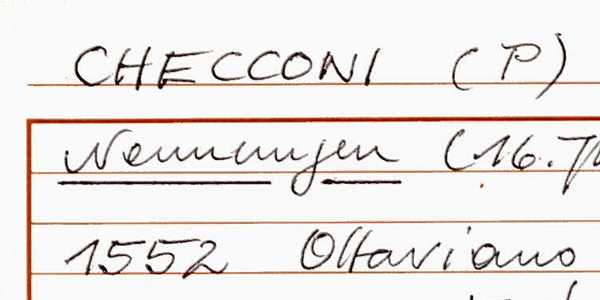 CHECCONI (P)
Nennungen (16.Jh
1552 Ottaviano